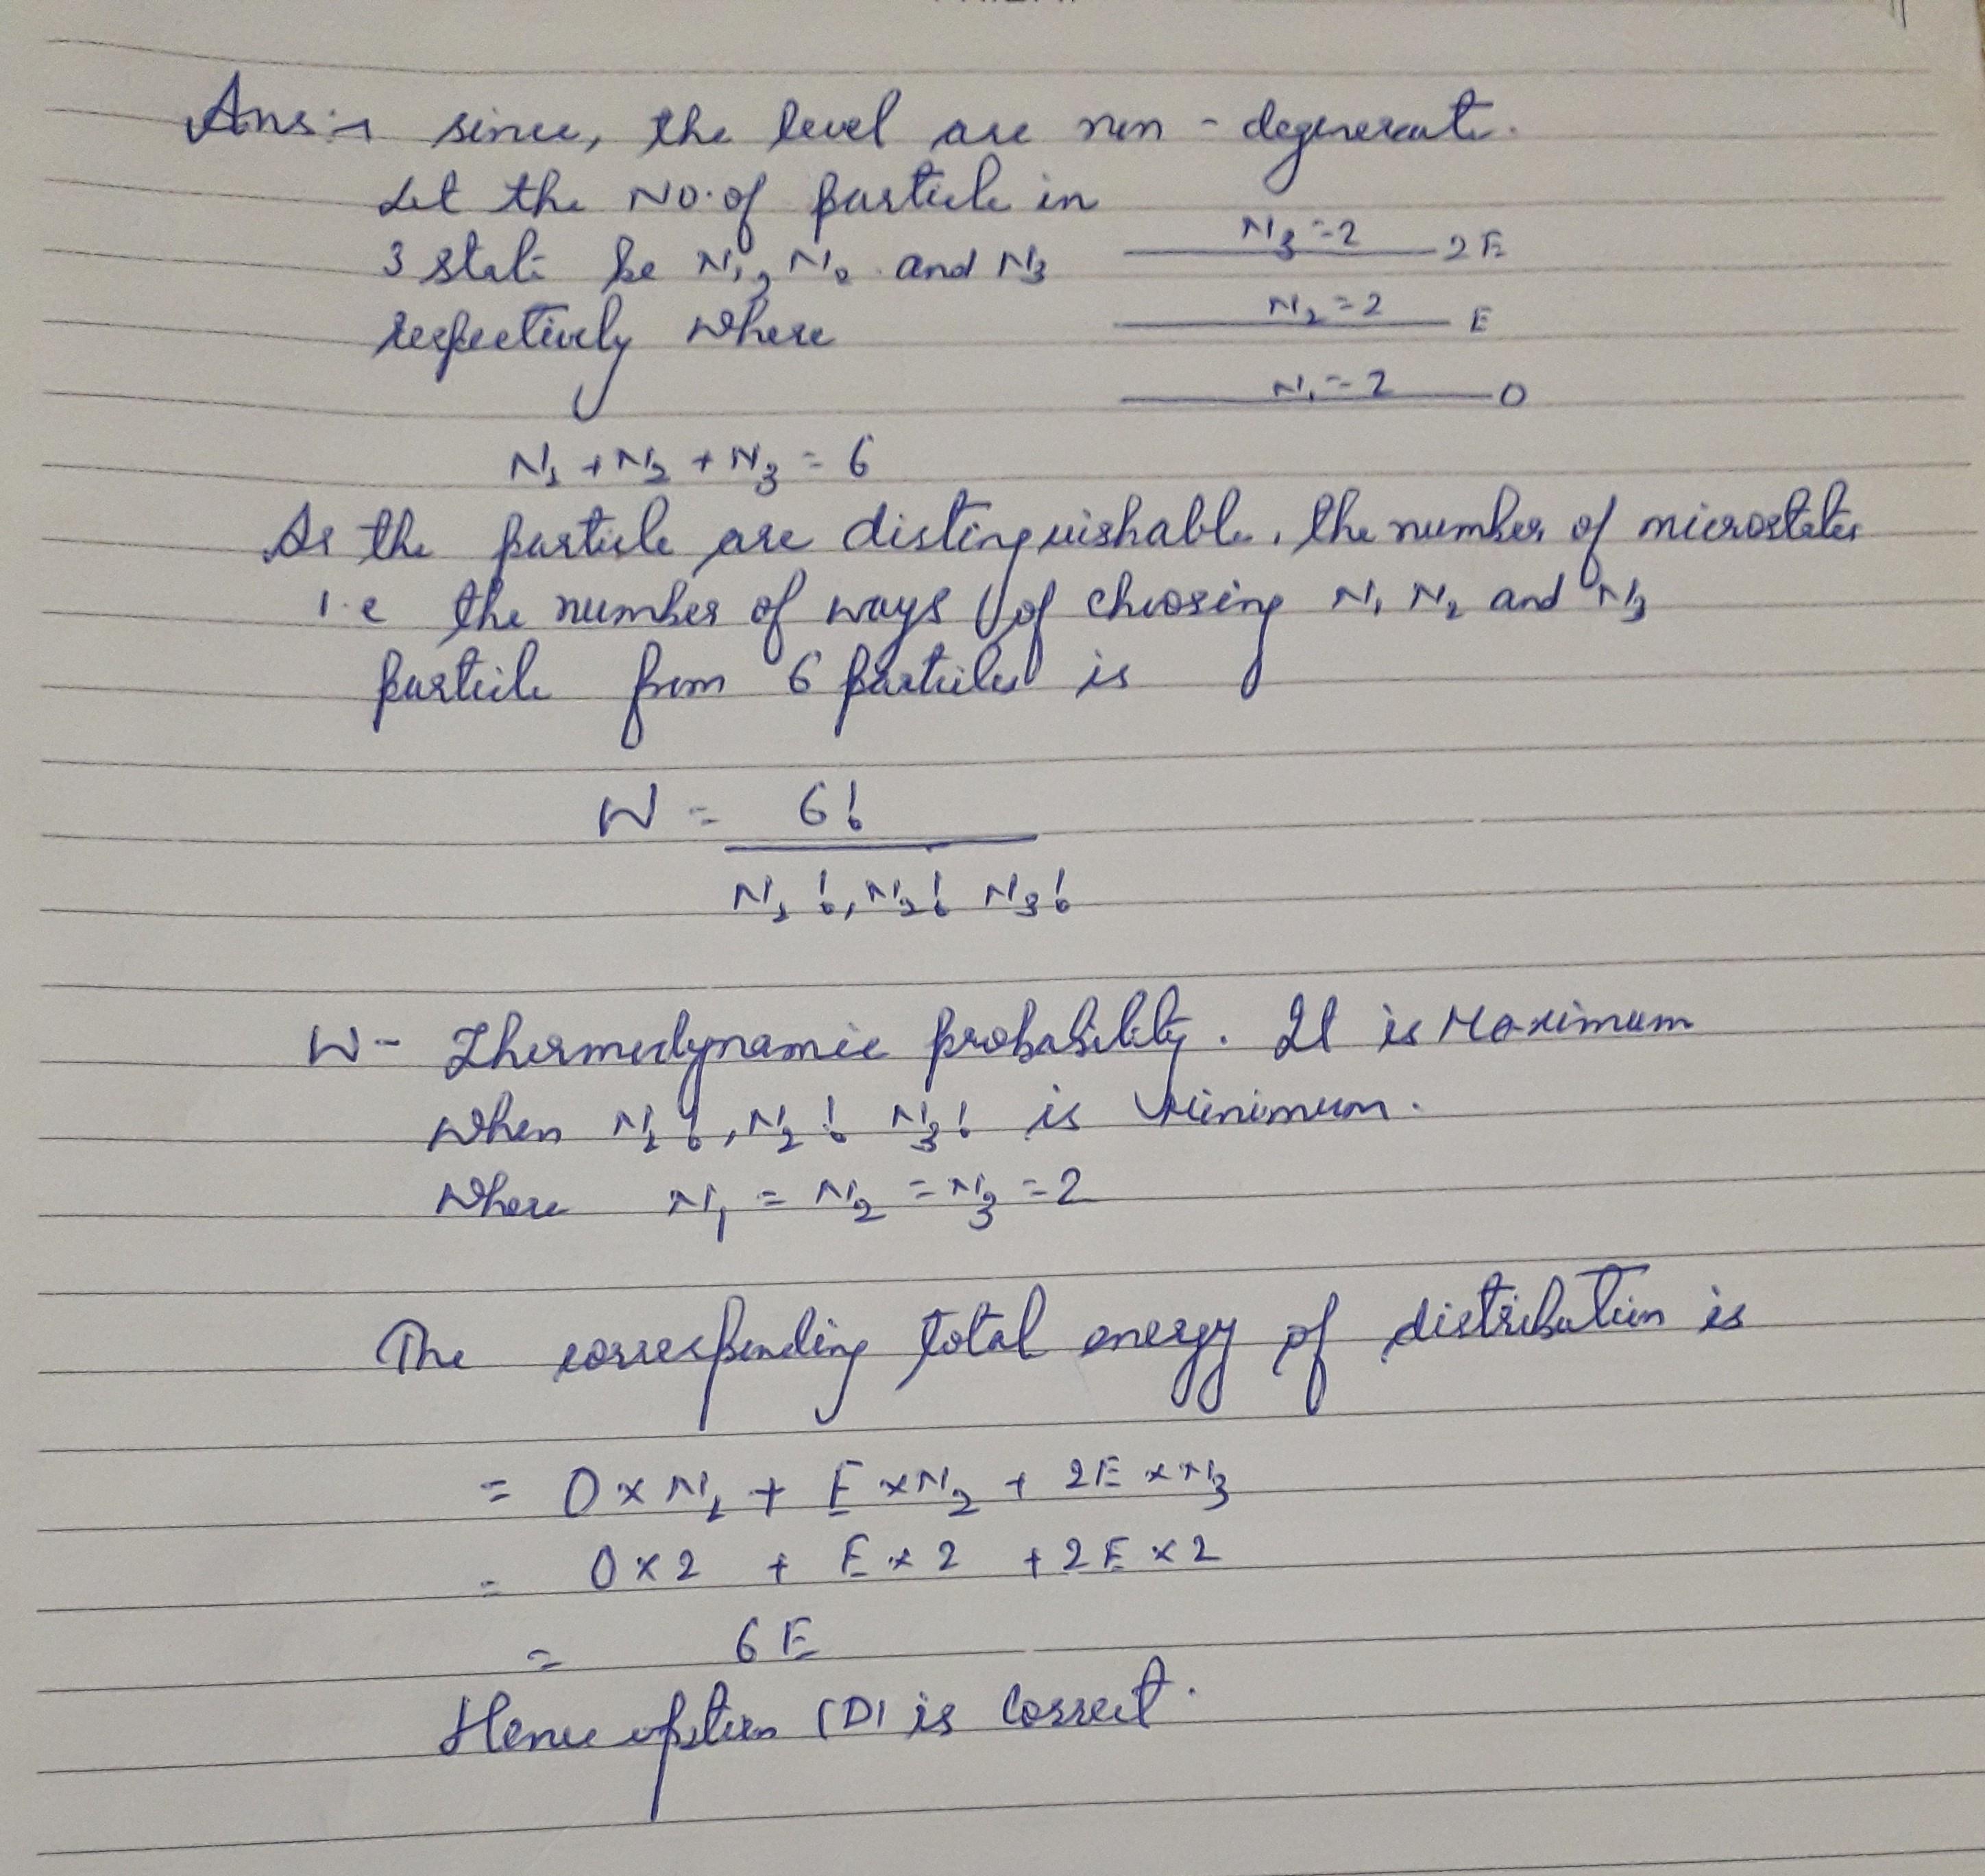 Ans:→ since, the level are non-degenerate.
Let the No. of particle in
3 state be N₁, N₂ and N₃
respectively where
N₃=2 2E
N₂=2 E
N₁=2 0
N₁+N₂+N₃=6
As the particle are distinguishable, the number of microstates
i.e the number of ways of choosing N₁ N₂ and N₃
particle from 6 particles is
W = 6!
N₁!, N₂! N₃!
W- Thermodynamic probability. It is Maximum
when N₁!, N₂! N₃! is Minimum.
Where N₁=N₂=N₃=2
The corresponding total energy of distribution is
= 0×N₁ + E×N₂ + 2E×N₃
= 0×2 + E×2 + 2E×2
= 6E
Hence option (D) is correct.